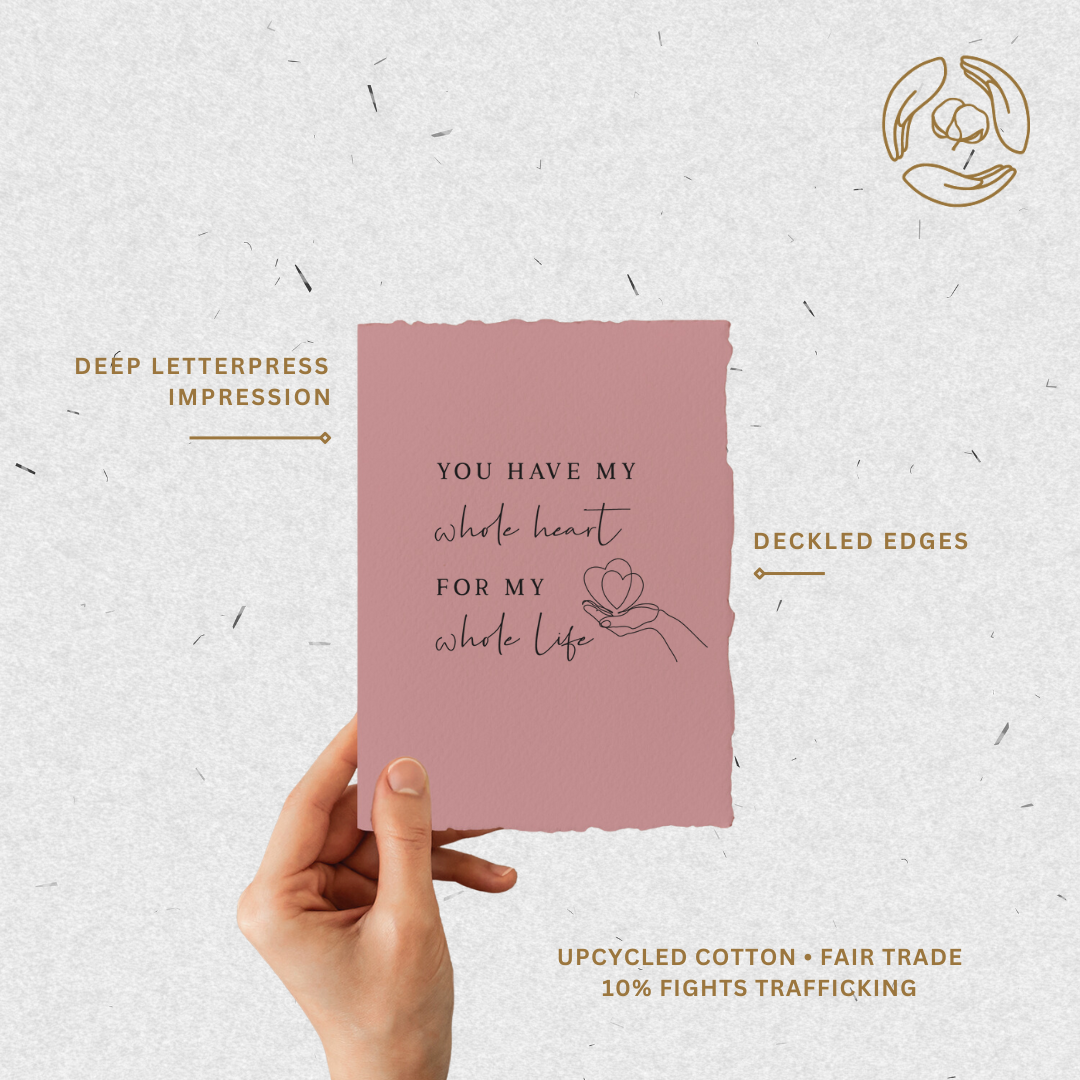 DEEP LETTERPRESS
IMPRESSION
YOU HAVE MY
whole heart
FOR MY
whole life
DECKLED EDGES
UPCYCLED COTTON • FAIR TRADE
10% FIGHTS TRAFFICKING